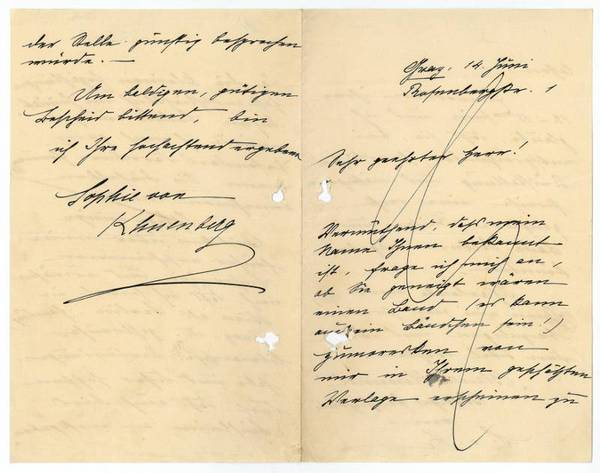 Graz, 14. Juni
Rosenbergstr. 1
Sehr geehrter Herr!
Vermuthend, daß mein
Name Ihnen bekannt
ist, frage ich mich an,
ob Sie geneigt wären
einen Band (es kann
auch ein Bändchen sein!)
Humoresken von
mir in Ihrem geschätzten
Verlage erscheinen zu
der Stelle günstig besprochen
würde. —
Um baldigen, gütigen
Bescheid bittend, bin
ich Ihre hochachtend ergebene
Sophie von
Khuenberg